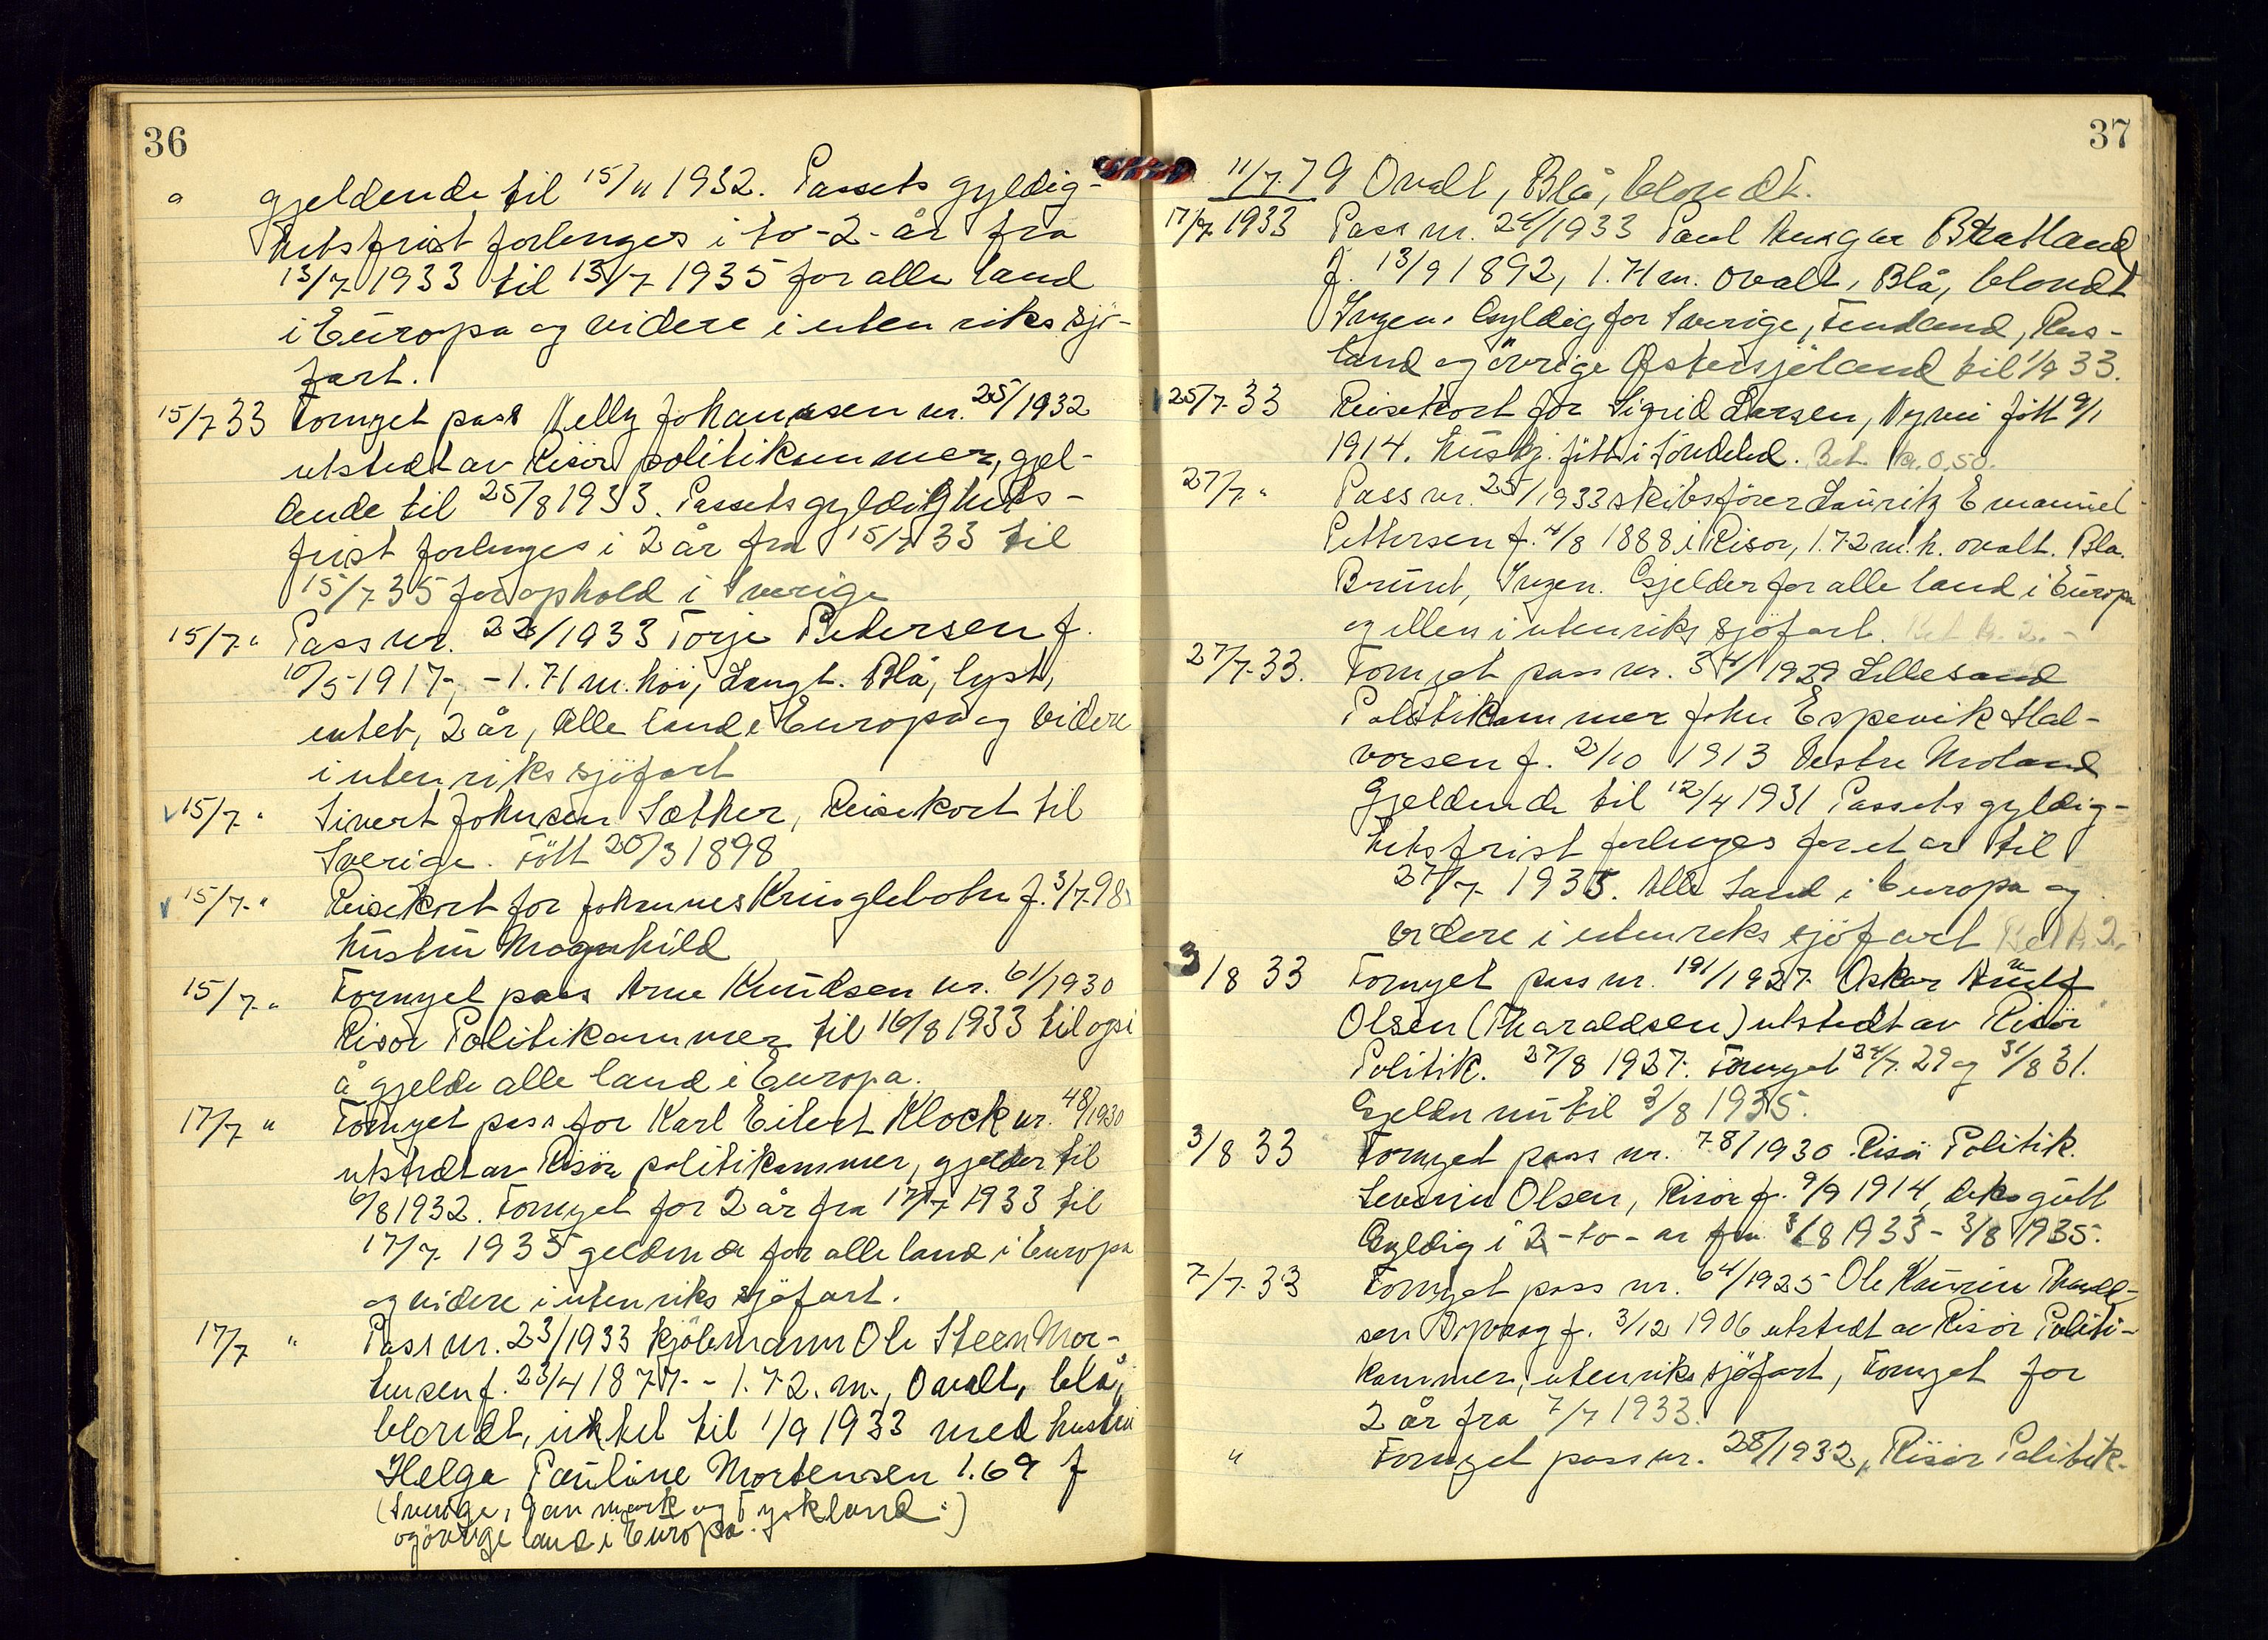 36
gjeldende til 15/11 1932. Passets gyldig-
hetsfrist forlenges i to -2- år fra
13/7 1933 til 13/7 1935 for alle land
i Europa og videre i utenriks sjö-
fart.
15/7 33 Fornyet pass Nelly Johannesen nr. 25/1932
utstedt av Risör politikammer, gjel-
dende til 25/8 1933. Passets gyldighets-
frist forlenges i 2 år fra 15/7 33 til
15/7 35 for ophold i Sverige
15/7 " Pass nr. 22/1933 Torje Pedersen f.
10/5 1917, - 1.71 m. höi, Langt. Blå, lyst,
intet, 2 år, Alle land i Europa og videre
i utenriks sjöfart
15/7 " Sivert Johnsen Sæther, Reisekort til
Sverige. Född 20/3 1898
15/7 " Reisekort for Johannes Kringlebotn f. 3/7 98
hustru Magnhild
15/7 " Fornyet pass Arne Knudsen nr. 61/1930
Risör Politikammer til 16/8 1933 til også
å gjelde alle land i Europa.
17/7 " Fornyet pass for Karl Eilert Klock nr. 48/1930
utstedt av Risör politikammer, gjelder til
6/8 1932. Fornyet for 2 år fra 17/7 1933 til
17/7 1935 geldende for alle land i Europa
og videre i utenriks sjöfart.
17/7 " Pass nr. 23/1933 kjöbmann Ole Steen Mor-
tensen f. 23/4 1877 - 1.72. m., Ovalt, blå,
blondt, intet til 1/9 1933 med hustru
Helga Pauline Mortensen 1.69 f
(Sverige, Danmark og Tyskland :)
og övrige land i Europa.
37
11/7. 79 Ovalt, Blå, blondt.
17/7 1933 Pass nr. 24/1933 Paul Ansgar Bratland
f. 13/9 1892, 1.71 m. ovalt, Blå, blondt
Ingen. Gyldig for Sverige, Finland, Rus-
land og övrige Østersjøland til 1/9 33.
25/7 33 Reisekort for Sigrid Larsen, född 9/1
1914. hushj. född i Söndeled. Bet. kr. 0,50.
27/7 " Pass nr. 25/1933 skibsförer Lauritz Emanuel
Pettersen f. 4/8 1888 i Risör, 1.72 m. h. ovalt. Blå.
Brunt, Ingen. Gjelder for alle land i Europa
og ellers i utenriks sjöfart. Bet kr. 2.-
27/7 33. Fornyet pass nr. 34/1929 Lillesand
Politikammer John Espevik Hal-
vorsen f. 2/10 1913 Vestre Moland
Gjeldende til 12/4 1931 Passets gyldig-
hetsfrist forlenges for et år til
27/7 1935. Alle land i Europa og
videre i utenriks sjöfart Bet kr 2.-
3/8 33 Fornyet pass nr. 191/1927 Oskar
Olsen (Tharaldsen) utstedt av Risör
Politik. 27/8 1927. Fornyet 24/7. 29 og 31/8 31.
Gjelder nu til 3/8 1935.
3/8 33 Fornyet pass nr. 78/1930 Risö Politik.
Severin Olsen, Risör f. 9/9 1914, dekksgutt
Gyldig i 2 -to- år fra 3/8 1933 - 3/8 1935.
7/7 33 Fornyet pass nr. 64/1925 Ole Kaurin
sen Dypvag f. 3/12 1906 utstedt av Risör Politi-
kammer, utenriks sjöfart, Fornyet for
2 år fra 7/7 1933.
" Fornyet pass nr. 28/1932, Risör Politik-